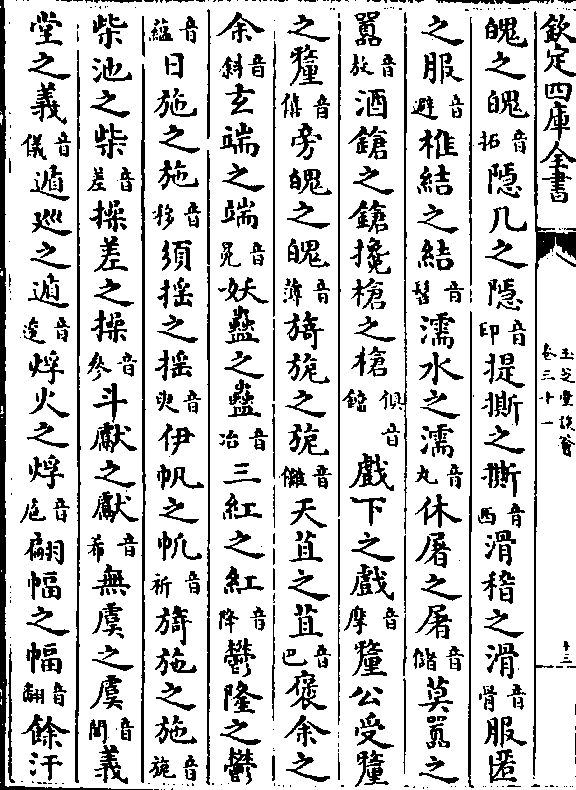 欽定四庫全書
玉芝堂談薈
卷三十一
十三
魄之魄音拓隱几之隱音印提撕之撕音西滑稽之滑音骨服匿
之服音避椎結之結音髻濡水之濡音丸休屠之屠音儲莫嚻之
嚻音敖酒鎗之鎗攙槍之槍俱音鐺戲下之戲音摩釐公受釐
之釐音僖旁魄之魄音薄旖旎之旎音儺天苴之苴音巴褒余之
余音斜玄端之端音冕妖蠱之蠱音冶三紅之紅音降鬱隆之鬱
音蘊日施之施音移須揺之揺音㬰伊帆之帆音祈旖施之施音旎
柴池之柴音差操差之操音參斗獻之獻音希無虞之虞音閒義
堂之義音儀遁廵之遁音逡烰火之烰音庖翩幅之幅音翻餘汗